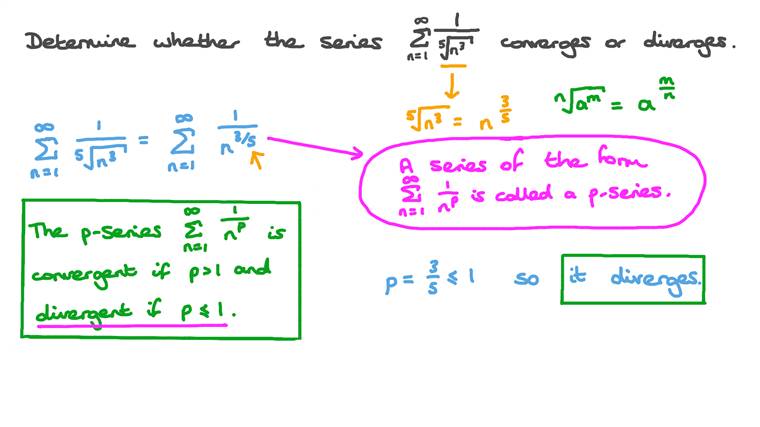 Determine whether the series \sum_{n=1}^{\infty} \frac{1}{\sqrt[5]{n^3}} converges or diverges.
\sqrt[5]{n^3} = n^{\frac{3}{5}}
\sqrt[n]{a^m} = a^{\frac{m}{n}}
\sum_{n=1}^{\infty} \frac{1}{\sqrt[5]{n^3}} = \sum_{n=1}^{\infty} \frac{1}{n^{3/5}}
A series of the form
\sum_{n=1}^{\infty} \frac{1}{n^p} is called a p-series.
The p-series \sum_{n=1}^{\infty} \frac{1}{n^p} is
convergent if p>1 and
divergent if p ⩽ 1.
p = \frac{3}{5} ⩽ 1 so it diverges.